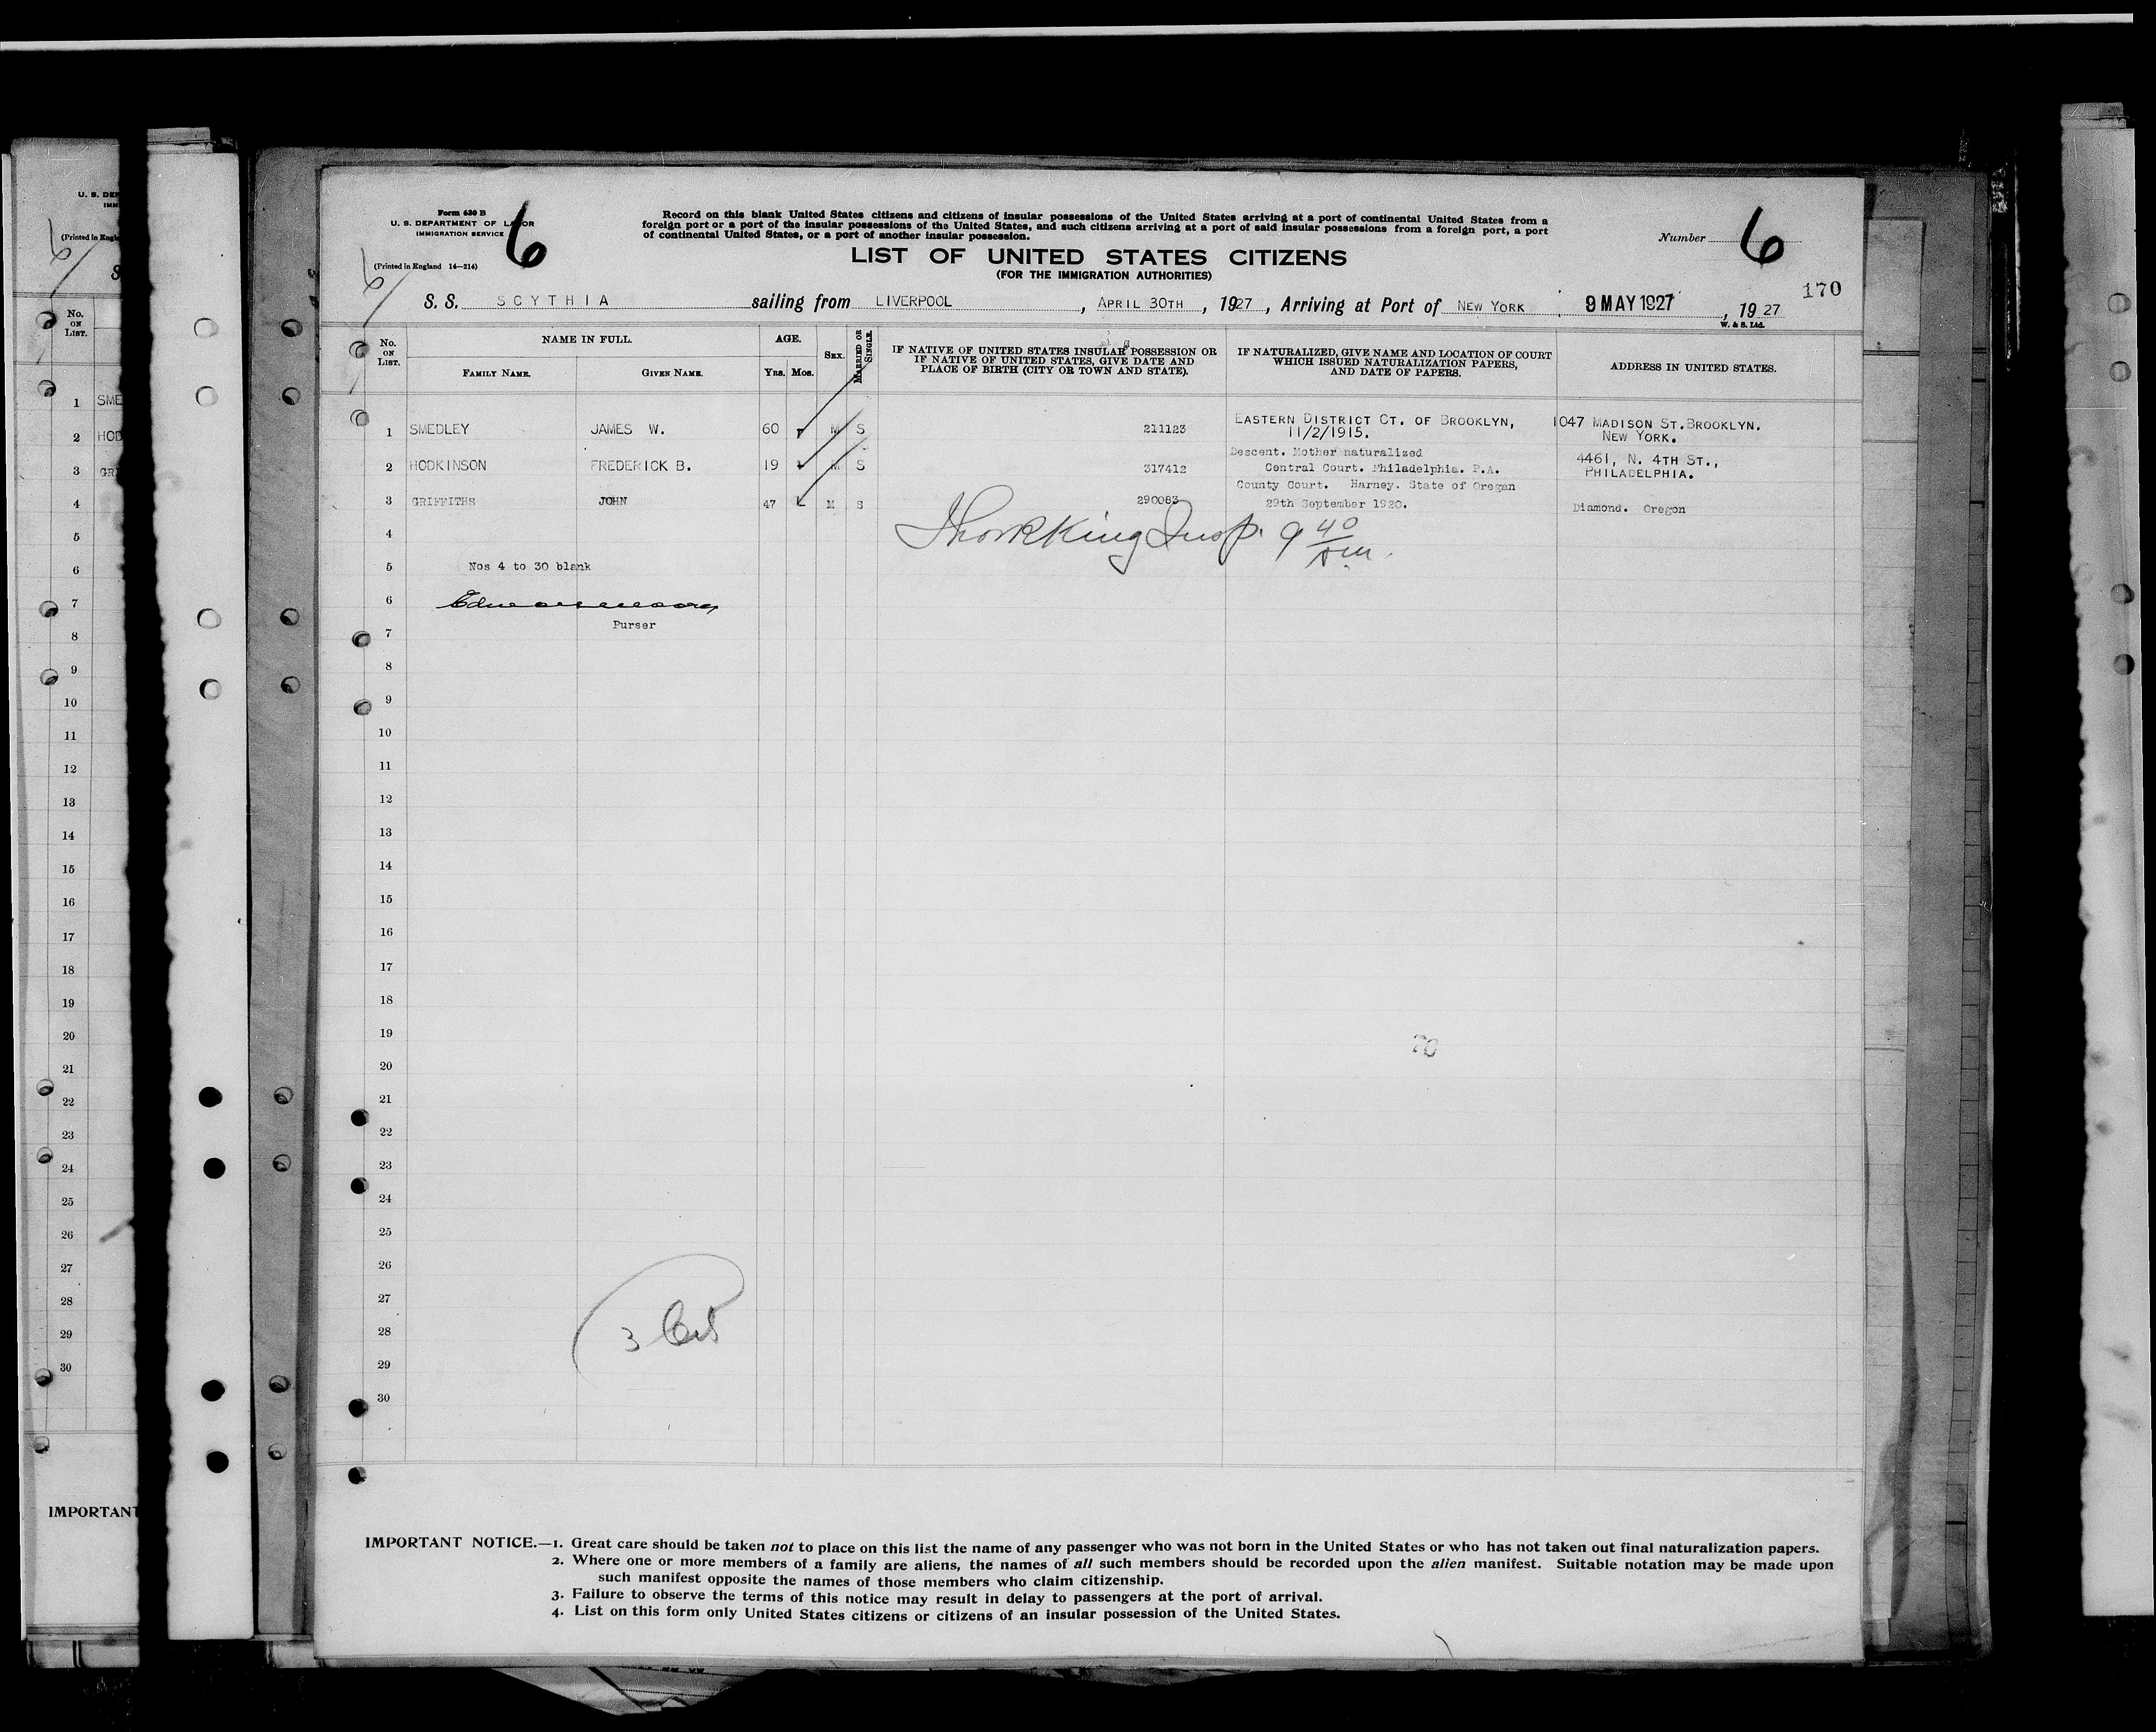 Form 630 B
U. S. DEPARTMENT OF LABOR
IMMIGRATION SERVICE
(Printed in England 14—214)
6
Record on this blank United States citizens and citizens of insular possessions of the United States arriving at a port of continental United States from a
foreign port or a port of the insular possessions of the United States, and such citizens arriving at a port of said insular possessions from a foreign port, a port
of continental United States, or a port of another insular possession.
Number 6
LIST OF UNITED STATES CITIZENS
(FOR THE IMMIGRATION AUTHORITIES)
170
S. S. SCYTHIA sailing from LIVERPOOL, APRIL 30TH, 1927, Arriving at Port of NEW YORK 9 MAY 1927, 1927
W. & S. Ltd.
No. ON LIST. NAME IN FULL. FAMILY NAME. GIVEN NAME. AGE. YRS. MOS. SEX. MARRIED OR SINGLE.
IF NATIVE OF UNITED STATES INSULAR POSSESSION OR
IF NATIVE OF UNITED STATES, GIVE DATE AND
PLACE OF BIRTH (CITY OR TOWN AND STATE).
IF NATURALIZED, GIVE NAME AND LOCATION OF COURT
WHICH ISSUED NATURALIZATION PAPERS,
AND DATE OF PAPERS.
ADDRESS IN UNITED STATES.
1 SMEDLEY JAMES W. 60 M S 211123 EASTERN DISTRICT CT. OF BROOKLYN, 11/2/1915. 1047 MADISON ST. BROOKLYN. NEW YORK.
2 HODKINSON FREDERICK B. 19 M S 317412 Descent. Mother naturalized Central Court. Philadelphia. P.A. 4461, N. 4TH ST., PHILADELPHIA.
3 GRIFFITHS JOHN 47 M S 290083 County Court. Harney. State of Oregon 29th September 1920. Diamond. Oregon
4
Insp. 9 40
5 Nos 4 to 30 blank
6
Purser
7
8
9
10
11
12
13
14
15
16
17
18
19
20
21
22
23
24
25
26
27
28
29
30
3
IMPORTANT NOTICE.—1. Great care should be taken not to place on this list the name of any passenger who was not born in the United States or who has not taken out final naturalization papers.
2. Where one or more members of a family are aliens, the names of all such members should be recorded upon the alien manifest. Suitable notation may be made upon
such manifest opposite the names of those members who claim citizenship.
3. Failure to observe the terms of this notice may result in delay to passengers at the port of arrival.
4. List on this form only United States citizens or citizens of an insular possession of the United States.